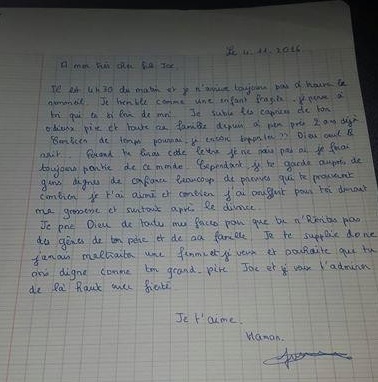 Le 4.11.2016
A mon très cher fils Joe.
Il est 4h30 du matin et je n'arrive toujours pas à trouver le
sommeil. Je tremble comme une enfant fragile, je pense à
toi qui es si loin de moi. Je subis les caprices de ton
odieux père et toute sa famille depuis à peu près 2 ans déjà
Combien de temps pourrai-je encore supporter? Dieu seul le
sait. Quand tu liras cette lettre je ne sais pas si je ferai
toujours partie de ce monde. Cependant, je te garde auprès de
gens dignes de confiance beaucoup de preuves qui te prouvent
combien je t'ai aimé et combien j'ai souffert pour toi durant
ma grossesse et surtout après le divorce.
Je prie Dieu de toutes mes forces pour que tu n'hérites pas
des gènes de ton père et de sa famille. Je te supplie donc
jamais maltraiter une femme et je veux et souhaite que tu
sois digne comme ton grand-père Joe et je veux t'admirer
de là haut avec fierté
Je t'aime.
Maman.